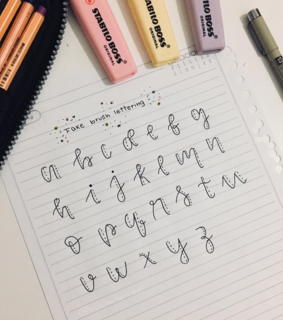 STABILO BOSS ORIGINAL
STABILO BOSS ORIGINAL
STABILO BOSS ORIGINAL
Fake brush lettering
a b c d e f g
h i j k l m n
o p q r s t u
v w x y z